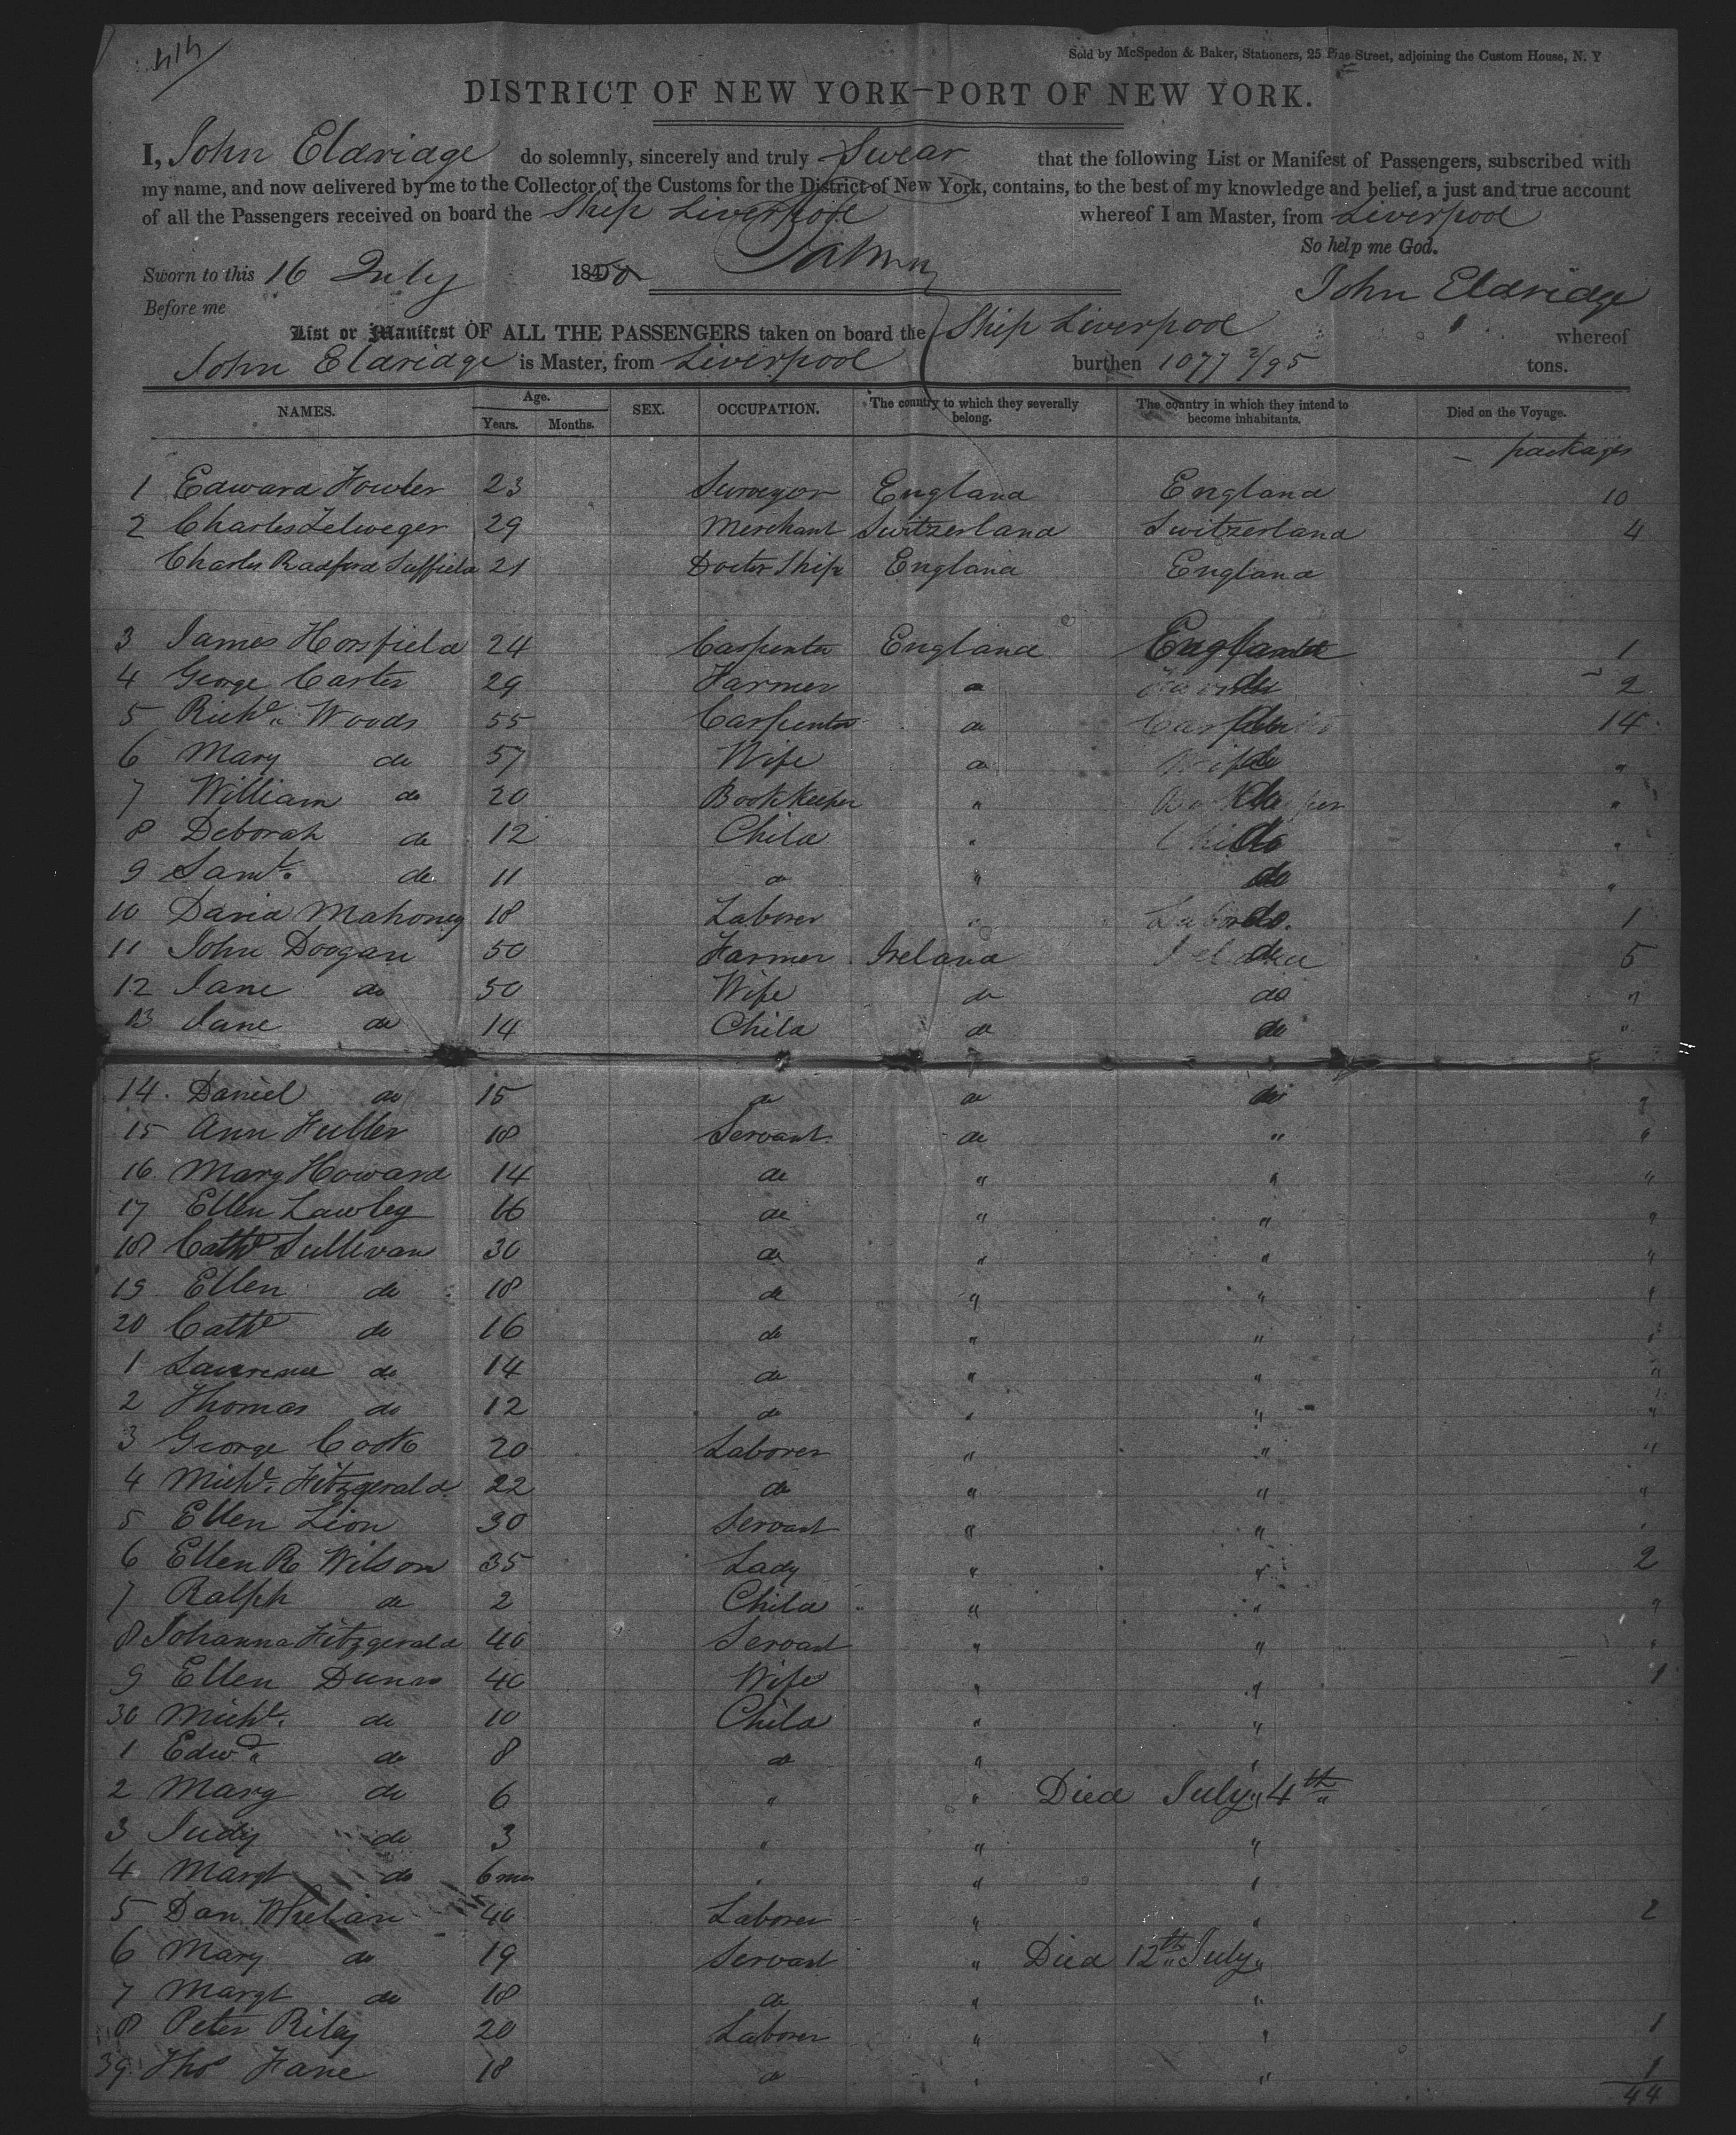 414
Sold by McSpedon & Baker, Stationers, 25 Pine Street, adjoining the Custom House, N. Y
DISTRICT OF NEW YORK—PORT OF NEW YORK.
I, John Eldridge do solemnly, sincerely and truly Swear that the following List or Manifest of Passengers, subscribed with
my name, and now delivered by me to the Collector of the Customs for the District of New York, contains, to the best of my knowledge and belief, a just and true account
of all the Passengers received on board the Ship Liverpool whereof I am Master, from Liverpool
So help me God.
Sworn to this 16 July 1850
John Eldridge
Before me
List or Manifest OF ALL THE PASSENGERS taken on board the Ship Liverpool whereof
John Eldridge is Master, from Liverpool burthen 1077 2/95 tons.
NAMES. Age. Years. Months. SEX. OCCUPATION. The country to which they severally belong. The country in which they intend to become inhabitants. Died on the Voyage.
packages
1 Edward Fowler 23 Surveyor England England 10
2 Charles Zelweger 29 Merchant Switzerland Switzerland 4
Charles Radford Suffield 21 Doctor Ship England England
3 James Horsfield 24 Carpenter England England 1
4 George Carter 29 Farmer do do 2
5 Richd. Woods 55 Carpenter do do 14
6 Mary do 57 Wife do do "
7 William do 20 Bookkeeper " do "
8 Deborah do 12 Child " do "
9 Saml. do 11 do " do "
10 David Mahoney 18 Laborer " do. 1
11 John Doogan 50 Farmer Ireland do 5
12 Jane do 50 Wife do do "
13 Jane do 14 Child do do "
14. Daniel do 15 do do do "
15 Ann Fuller 18 Servant do " "
16 Mary Howard 14 do " " "
17 Ellen Lawley 16 do " " "
18 Cathe Sullivan 30 do " " "
19 Ellen do 18 do " " "
20 Cathe do 16 do " " "
1 Lawrence do 14 do " " "
2 Thomas do 12 do " " "
3 George Cook 20 Laborer " " "
4 Michl. Fitzgerald 22 do " " "
5 Ellen Lion 30 Servant " " "
6 Ellen R Wilson 35 Lady " " 2
7 Ralph do 2 Child " " "
8 Johanna Fitzgerald 40 Servant " " "
9 Ellen Dunn 40 Wife " " 1
30 Michl. do 10 Child " "
1 Edwd. do 8 do " "
2 Mary do 6 " " Died July 4th "
3 Judy do 3 " " "
4 Margt do 6 mos " " "
5 Dan Whelan 40 Laborer " " 2
6 Mary do 19 Servant " Died 12th July "
7 Margt do 18 do " "
8 Peter Riley 20 Laborer " " 1
39. Thos Fane 18 do " " 1
44